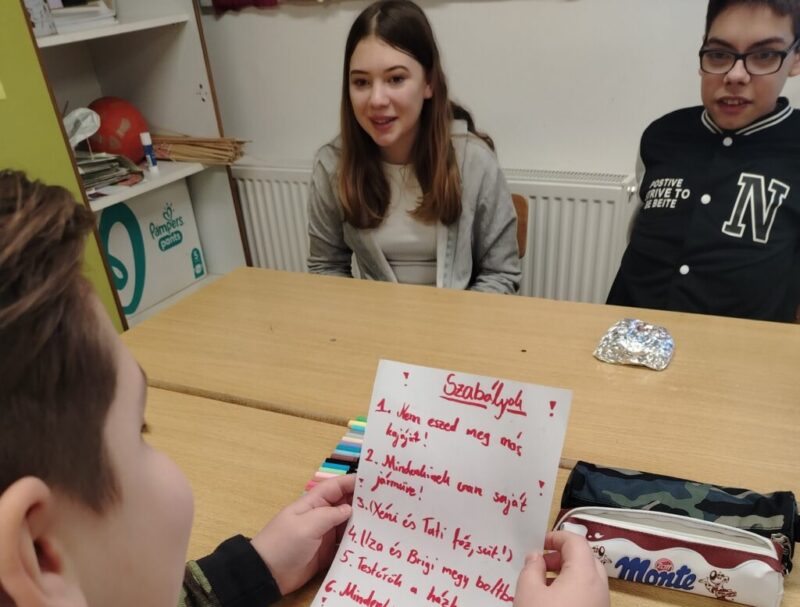 Pampers
pants
5
POSTIVE
STRIVE TO
BE BEITE
N
! Szabályok !
1. Nem eszed meg más
kajáját!
2. Mindenkinek van saját
járműve!
3. (Xéni és Tati főz, süt!)
4. Liza és Brigi megy boltba
5. Testőrök a házb
6. Minden
zott
Monte